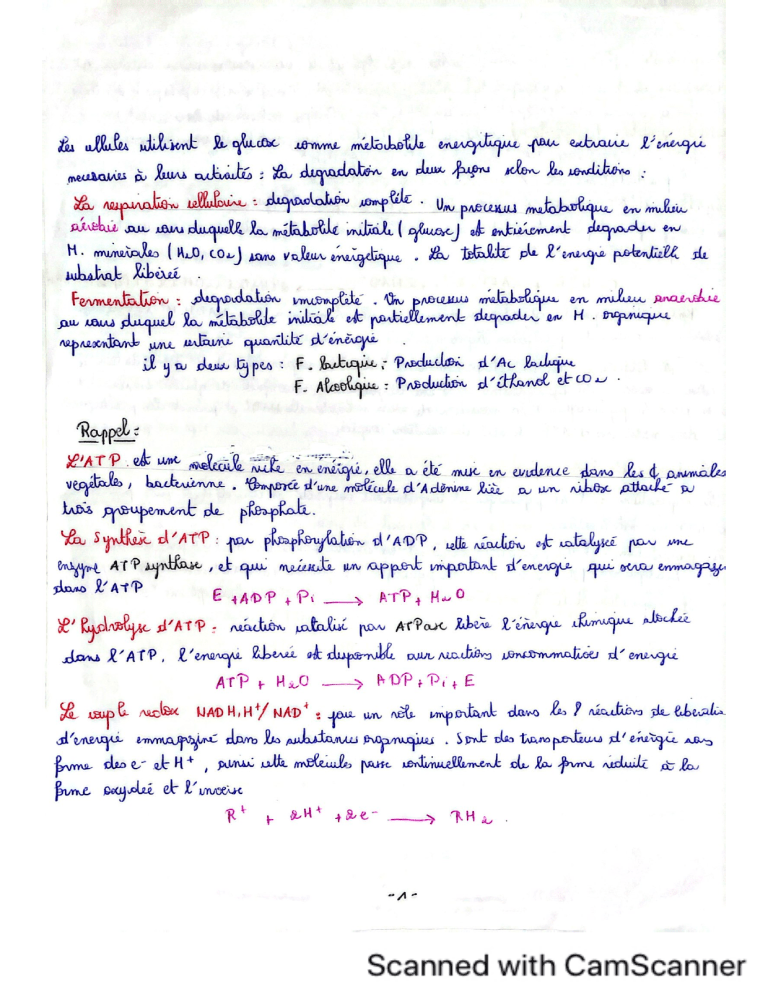 Les cellules utilisent le glucose comme métabolite energitique pour extraire l'énergie
necessaires à leurs activités : La degradation en deux façons selon les conditions :
La respiration cellulaire : degradation complète. Un processus metabolique en milieu
aérobie au cours duquelle la métabolite initiale (glucose) est entièrement degrader en
M. minérales (H2O, CO2) sans valeur énergétique. La totalité de l'energie potentielle de
substrat libérée.
Fermentation : degradation imcomplète. Un processus métabolique en milieu anaerobie
au cours duquel la métabolite initiale est partiellement degrader en M. organique
representant une certaine quantité d'énergie
il y a deux types : F. lactique : Production d'Ac lactique
F. Alcoolique : Production d'éthanol et CO2.
Rappel :
L'ATP est une molécule riche en énérgie, elle a été mise en evidence dans les animales
vegétales, bacterienne. Composée d'une molécule d'Adénine liée a un ribose attaché a
trois groupement de phosphate.
La Synthèse d'ATP : par phosphorylation d'ADP, cette réaction est catalysée par une
enzyme ATP synthase, et qui necéssite un apport important d'energie qui sera emmagaze
dans l'ATP
E + ADP + Pi → ATP + H2O
L'hydrolyse d'ATP : réaction catalisé par ATPase libère l'énergie chimique stockée
dans l'ATP, l'energie liberée est disponible aux reactions consommatrices d'energie
ATP + H2O → ADP + Pi + E
Le couple redox NADH,H+/NAD+ : joue un rôle important dans les réactions de liberatio
d'energie emmagaziné dans les substances organiques. Sont des transporteurs d'énergie sous
forme des e- et H+, ainsi cette molécules passe continuellement de la forme réduite à la
forme oxydeé et l'inverse
R+ + 2H+ + 2e- → RH2.
-1-
Scanned with CamScanner